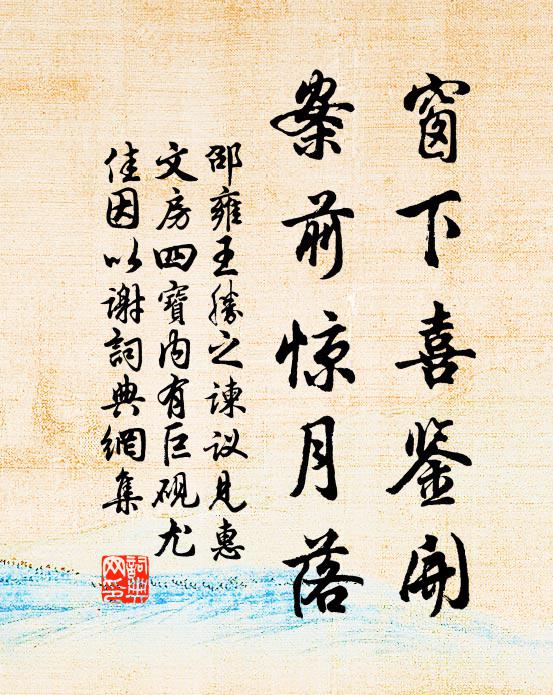 窗下喜鉴开
案前惊月落
邵雍王胜之谏议见惠
文房四寶内有巨砚尤
佳因以谢詞典網集